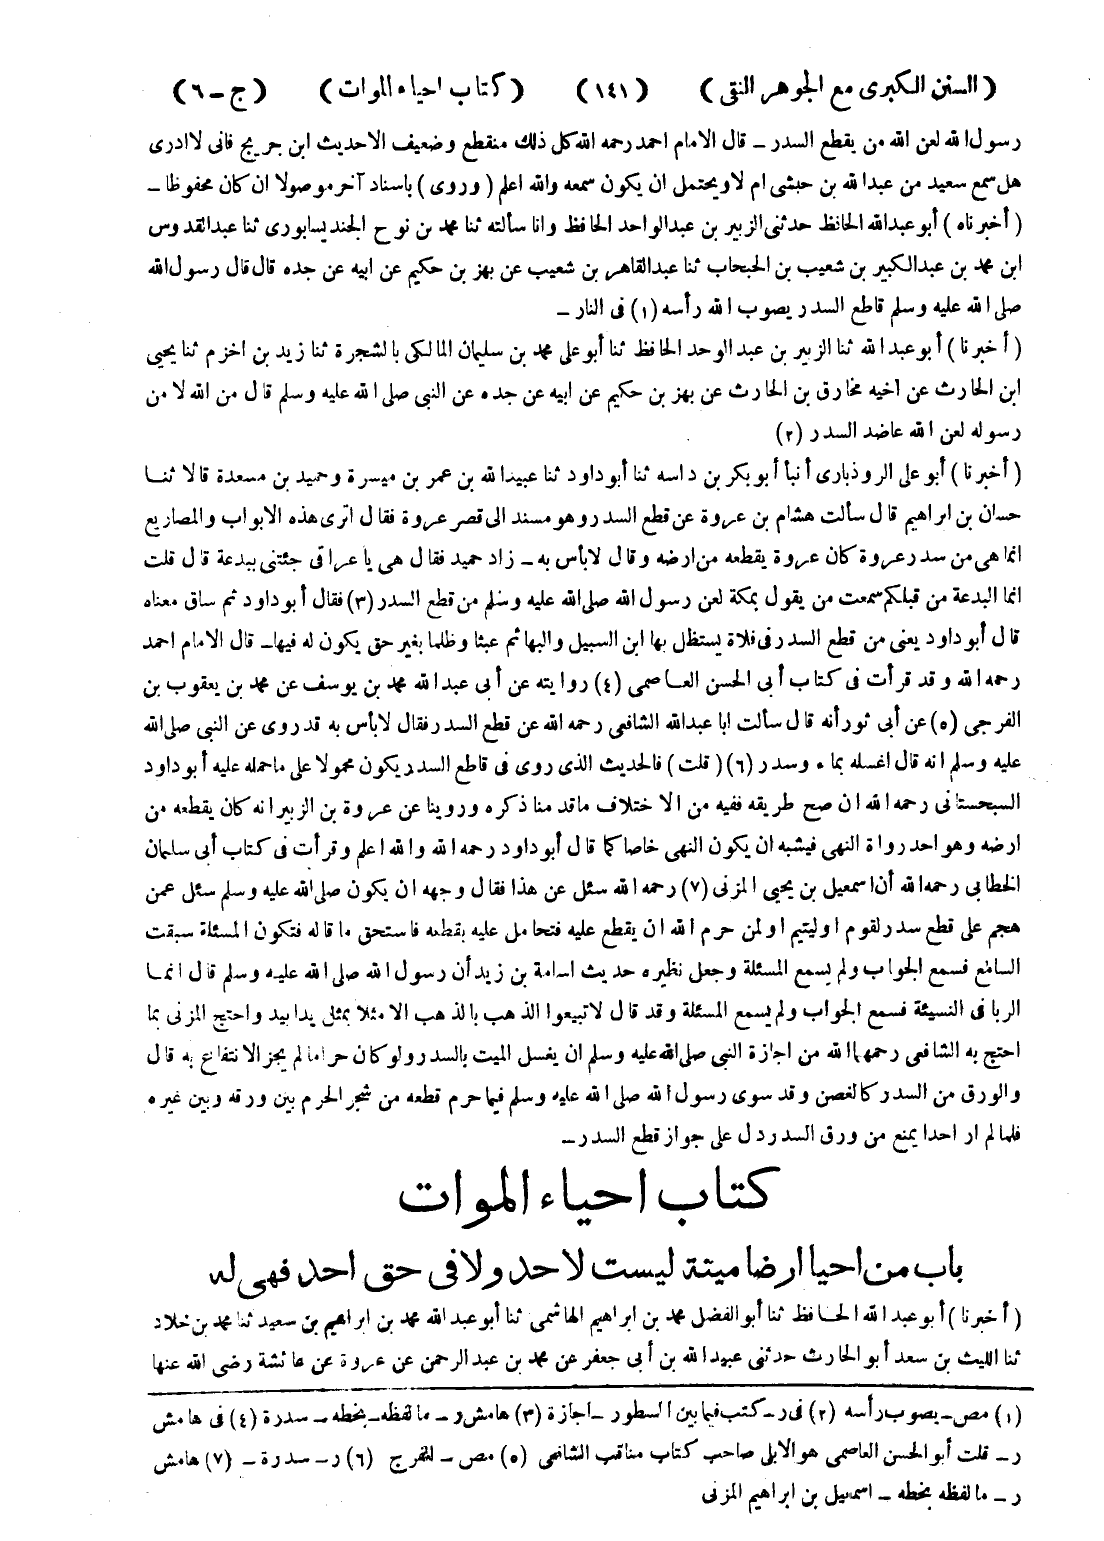 ( السنن الكبرى مع الجوهر النقى ) ( ١٤١ ) ( كتاب احياء الموات ) ( ج – ٦ )
رسول الله لعن الله من يقطع السدر – قال الامام احمد رحمه الله كل ذلك منقطع وضعيف الاحديث ابن جريج فانى لا ادرى
هل سمع سعيد من عبد الله بن حبشى ام لا ويحتمل ان يكون سمعه والله اعلم ( وروى ) باسناد آخر موصولا ان كان محفوظا –
( أخبرناه ) أبو عبد الله الحافظ حدثنى الزبير بن عبد الواحد الحافظ وانا سألته ثنا محمد بن نوح الجنديسابورى ثنا عبد القدوس
ابن محمد بن عبد الكبير بن شعيب بن الحبحاب ثنا عبد القاهر بن شعيب عن بهز بن حكيم عن ابيه عن جده قال قال رسول الله
صلى الله عليه وسلم قاطع السدر يصوب الله رأسه (١) فى النار –
( أخبرنا ) أبو عبد الله ثنا الزبير بن عبد الوحد الحافظ ثنا أبو على محمد بن سليمان المالكى بالشجرة ثنا زيد بن اخزم ثنا يحيى
ابن الحارث عن اخيه مخارق بن الحارث عن بهز بن حكيم عن ابيه عن جده عن النبى صلى الله عليه وسلم قال من الله لا من
رسوله لعن الله عاضد السدر (٢)
( أخبرنا ) أبو على الروذبارى أنبأ أبو بكر بن داسه ثنا أبو داود ثنا عبيد الله بن عمر بن ميسرة وحميد بن مسعدة قالا ثنا
حسان بن ابراهيم قال سألت هشام بن عروة عن قطع السدر وهو مسند الى قصر عروة فقال اترى هذه الابواب والمصاريع
انما هى من سدر عروة كان عروة يقطعه من ارضه وقال لا بأس به – زاد حميد فقال هى يا عراقى جئتنى ببدعة قال قلت
انما البدعة من قبلكم سمعت من يقول بمكة لعن رسول الله صلى الله عليه وسلم من قطع السدر (٣) فقال أبو داود ثم ساق معناه
قال أبو داود يعنى من قطع السدر فى فلاة يستظل بها ابن السبيل والبهائم عبثا وظلما بغير حق يكون له فيها – قال الامام احمد
رحمه الله وقد قرأت فى كتاب أبى الحسن العاصمى (٤) روايته عن أبى عبد الله محمد بن يوسف عن محمد بن يعقوب بن
الفرجى (٥) عن أبى ثور أنه قال سألت ابا عبد الله الشافعى رحمه الله عن قطع السدر فقال لا بأس به قد روى عن النبى صلى الله
عليه وسلم انه قال اغسله بماء وسدر (٦) ( قلت ) فالحديث الذى روى فى قاطع السدر يكون محمولا على ما حمله عليه أبو داود
السجستانى رحمه الله ان صح طريقه ففيه من الاختلاف ما قد منا ذكره وروينا عن عروة بن الزبير انه كان يقطعه من
ارضه وهو احد رواة النهى فيشبه ان يكون النهى خاصا كما قال أبو داود رحمه الله والله اعلم وقرأت فى كتاب أبى سليمان
الخطابى رحمه الله أن اسمعيل بن يحيى المزنى (٧) رحمه الله سئل عن هذا فقال وجهه ان يكون صلى الله عليه وسلم سئل عمن
هجم على قطع سدر لقوم او ليتيم او لمن حرم الله ان يقطع عليه فتحامل عليه بقطعه فاستحق ما قاله فتكون المسئلة سبقت
السامع فسمع الجواب ولم يسمع المسئلة وجعل نظيره حديث اسامة بن زيد أن رسول الله صلى الله عليه وسلم قال انما
الربا فى النسيئة فسمع الجواب ولم يسمع المسئلة وقد قال لا تبيعوا الذهب بالذهب الا مثلا بمثل يدا بيد واحتج المزنى بما
احتج به الشافعى رحمهما الله من اجازة النبى صلى الله عليه وسلم ان يغسل الميت بالسدر ولو كان حراما لم يجز الانتفاع به قال
والورق من السدر كالغصن وقد سوى رسول الله صلى الله عليه وسلم فيما حرم قطعه من شجر الحرم بين ورقه وبين غيره
فلما لم ار احدا يمنع من ورق السدر دل على جواز قطع السدر –
كتاب احياء الموات
باب من احيا ارضا ميتة ليست لاحد ولا فى حق احد فهى له
( أخبرنا ) أبو عبد الله الحافظ ثنا أبو الفضل محمد بن ابراهيم الهاشمى ثنا أبو عبد الله محمد بن ابراهيم بن سعيد ثنا محمد بن خلاد
ثنا الليث بن سعد أبو الحارث حدثنى عبيد الله بن أبى جعفر عن محمد بن عبد الرحمن عن عروة عن عائشة رضى الله عنها
(١) مص – يصوب رأسه (٢) فى ر – كتب فيما بين السطور – اجازة (٣) هامش ر – ما لفظه – بخطه – سدرة (٤) فى هامش
ر – قلت أبو الحسن العاصمى هو الابلى صاحب كتاب مناقب الشافعى (٥) مص – للتفرج (٦) ر – سدرة – (٧) هامش
ر – ما لفظه بخطه – اسمعيل بن ابراهيم المزنى